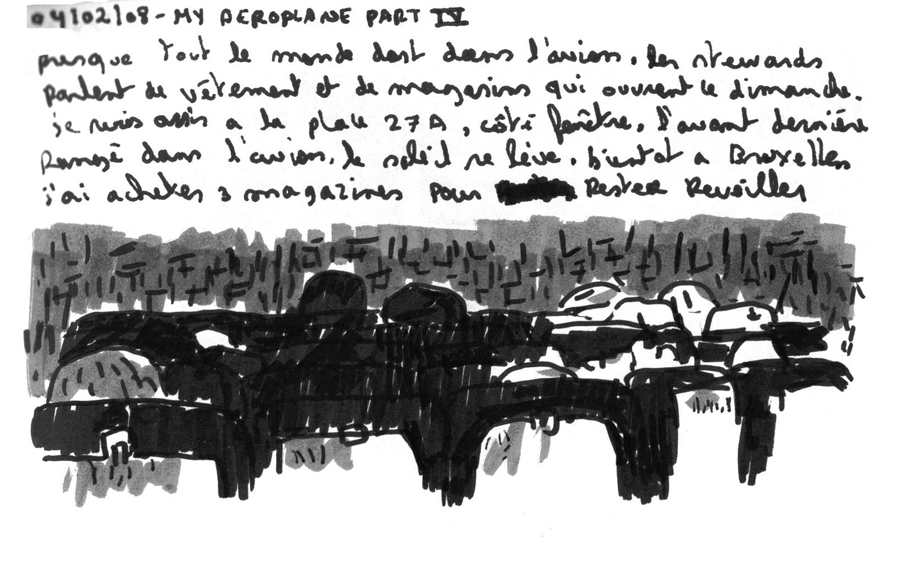 04/02/08 - MY AEROPLANE PART IV
presque tout le monde dort dans l'avion. les stewards
parlent de vêtement et de magasins qui ouvrent le dimanche.
je suis assis a la place 27A, côté fenêtre, l'avant dernière
Rangé dans l'avion. le soleil se lève. bientot a Bruxelles
j'ai acheter 3 magazines pour Rester Reveiller